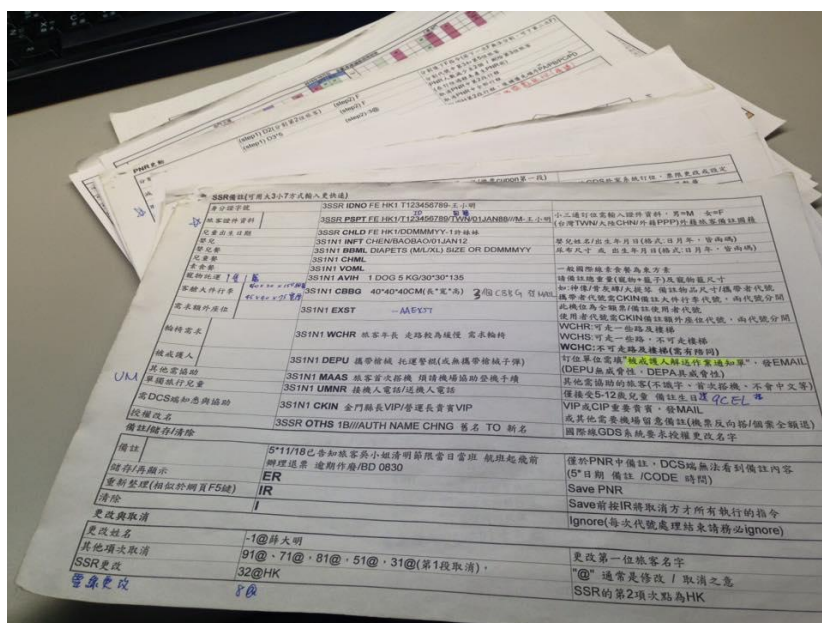 PNR更新
(step1) D3*5
(step2) F
SSR備註(可用大3小7方式輸入更快速)
身分證字號 3SSR IDNO FE HK1 T123456789-王小明
旅客證件資料 3SSR PSPT FE HK1/T123456789/TWN/01JAN88///M-王小明 小三通訂位需輸入證件資料,男=M 女=F
(台灣TWN/大陸CHN/外籍PPP)外籍旅客備註國籍
兒童出生日期 3SSR CHLD FE HK1/DDMMMYY-1許妹妹
嬰兒 3S1N1 INFT CHEN/BAOBAO/01JAN12 嬰兒姓名/出生年月日(格式:日月年,皆兩碼)
嬰兒餐 3S1N1 BBML DIAPETS (M/L/XL) SIZE OR DDMMMYY 尿布尺寸 或 出生年月日(格式:日月年,皆兩碼)
兒童餐 3S1N1 CHML
素食餐 3S1N1 VOML 一般國際線素食餐為東方素
寵物託運 3S1N1 AVIH 1 DOG 5 KG/30*30*135 請備註總重量(寵物+籠子)及寵物籠尺寸
客艙大件行李 3S1N1 CBBG 40*40*40CM(長*寬*高) 3個CBBG 發MAIL 如:神像/骨灰罈/大提琴 備註物品尺寸/攜帶者代號
攜帶者代號需CKIN備註大件行李代號,兩代號分開
需求額外座位 3S1N1 EXST -AAEXST 此機位為全額票/備註使用者代號
使用者代號需CKIN備註額外座位代號,兩代號分開
輪椅需求 3S1N1 WCHR 旅客年長 走路較為緩慢 需求輪椅 WCHR:可走一些路及樓梯
WCHS:可走一些路,不可走樓梯
WCHC:不可走路及樓梯(需有陪同)
被戒護人 3S1N1 DEPU 攜帶槍械 托運警棍(或無攜帶槍械子彈) 訂位單位需填"被戒護人解送作業通知單",發EMAIL
(DEPU無戒脅性,DEPA具戒脅性)
其他需協助 3S1N1 MAAS 旅客首次搭機 煩請機場協助登機手續 其他需協助的旅客(不識字、首次搭機、不會中文等)
UM 單獨旅行兒童 3S1N1 UMNR 接機人電話/送機人電話 僅接受5-12歲兒童 備註生日 9CEL
需DCS端知悉與協助 3S1N1 CKIN 金門縣長VIP/營運長貴賓VIP VIP或CIP重要貴賓,發MAIL
或其他需要機場留意備註(機票反向搭/個案全額退)
授權改名 3SSR OTHS 1B///AUTH NAME CHNG 舊名 TO 新名 國際線GDS系統要求授權更改名字
備註/儲存/清除
備註 5*11/18已告知旅客吳小姐清明節限當日當班 航班起飛前
辦理退票 逾期作廢/BD 0830 僅於PNR中備註,DCS端無法看到備註內容
(5*日期 備註 /CODE 時間)
儲存/再顯示 ER Save PNR
重新整理(相似於網頁F5鍵) IR Save前按IR將取消方才所有執行的指令
清除 I Ignore(每次代號處理結束請務必ignore)
更改與取消
更改姓名 -1@薛大明 更改第一位旅客名字
其他項次取消 91@、71@,81@,51@,31@(第1段取消), "@" 通常是修改 / 取消之意
SSR更改 32@HK SSR的第2項次點為HK
電聯更改 8@